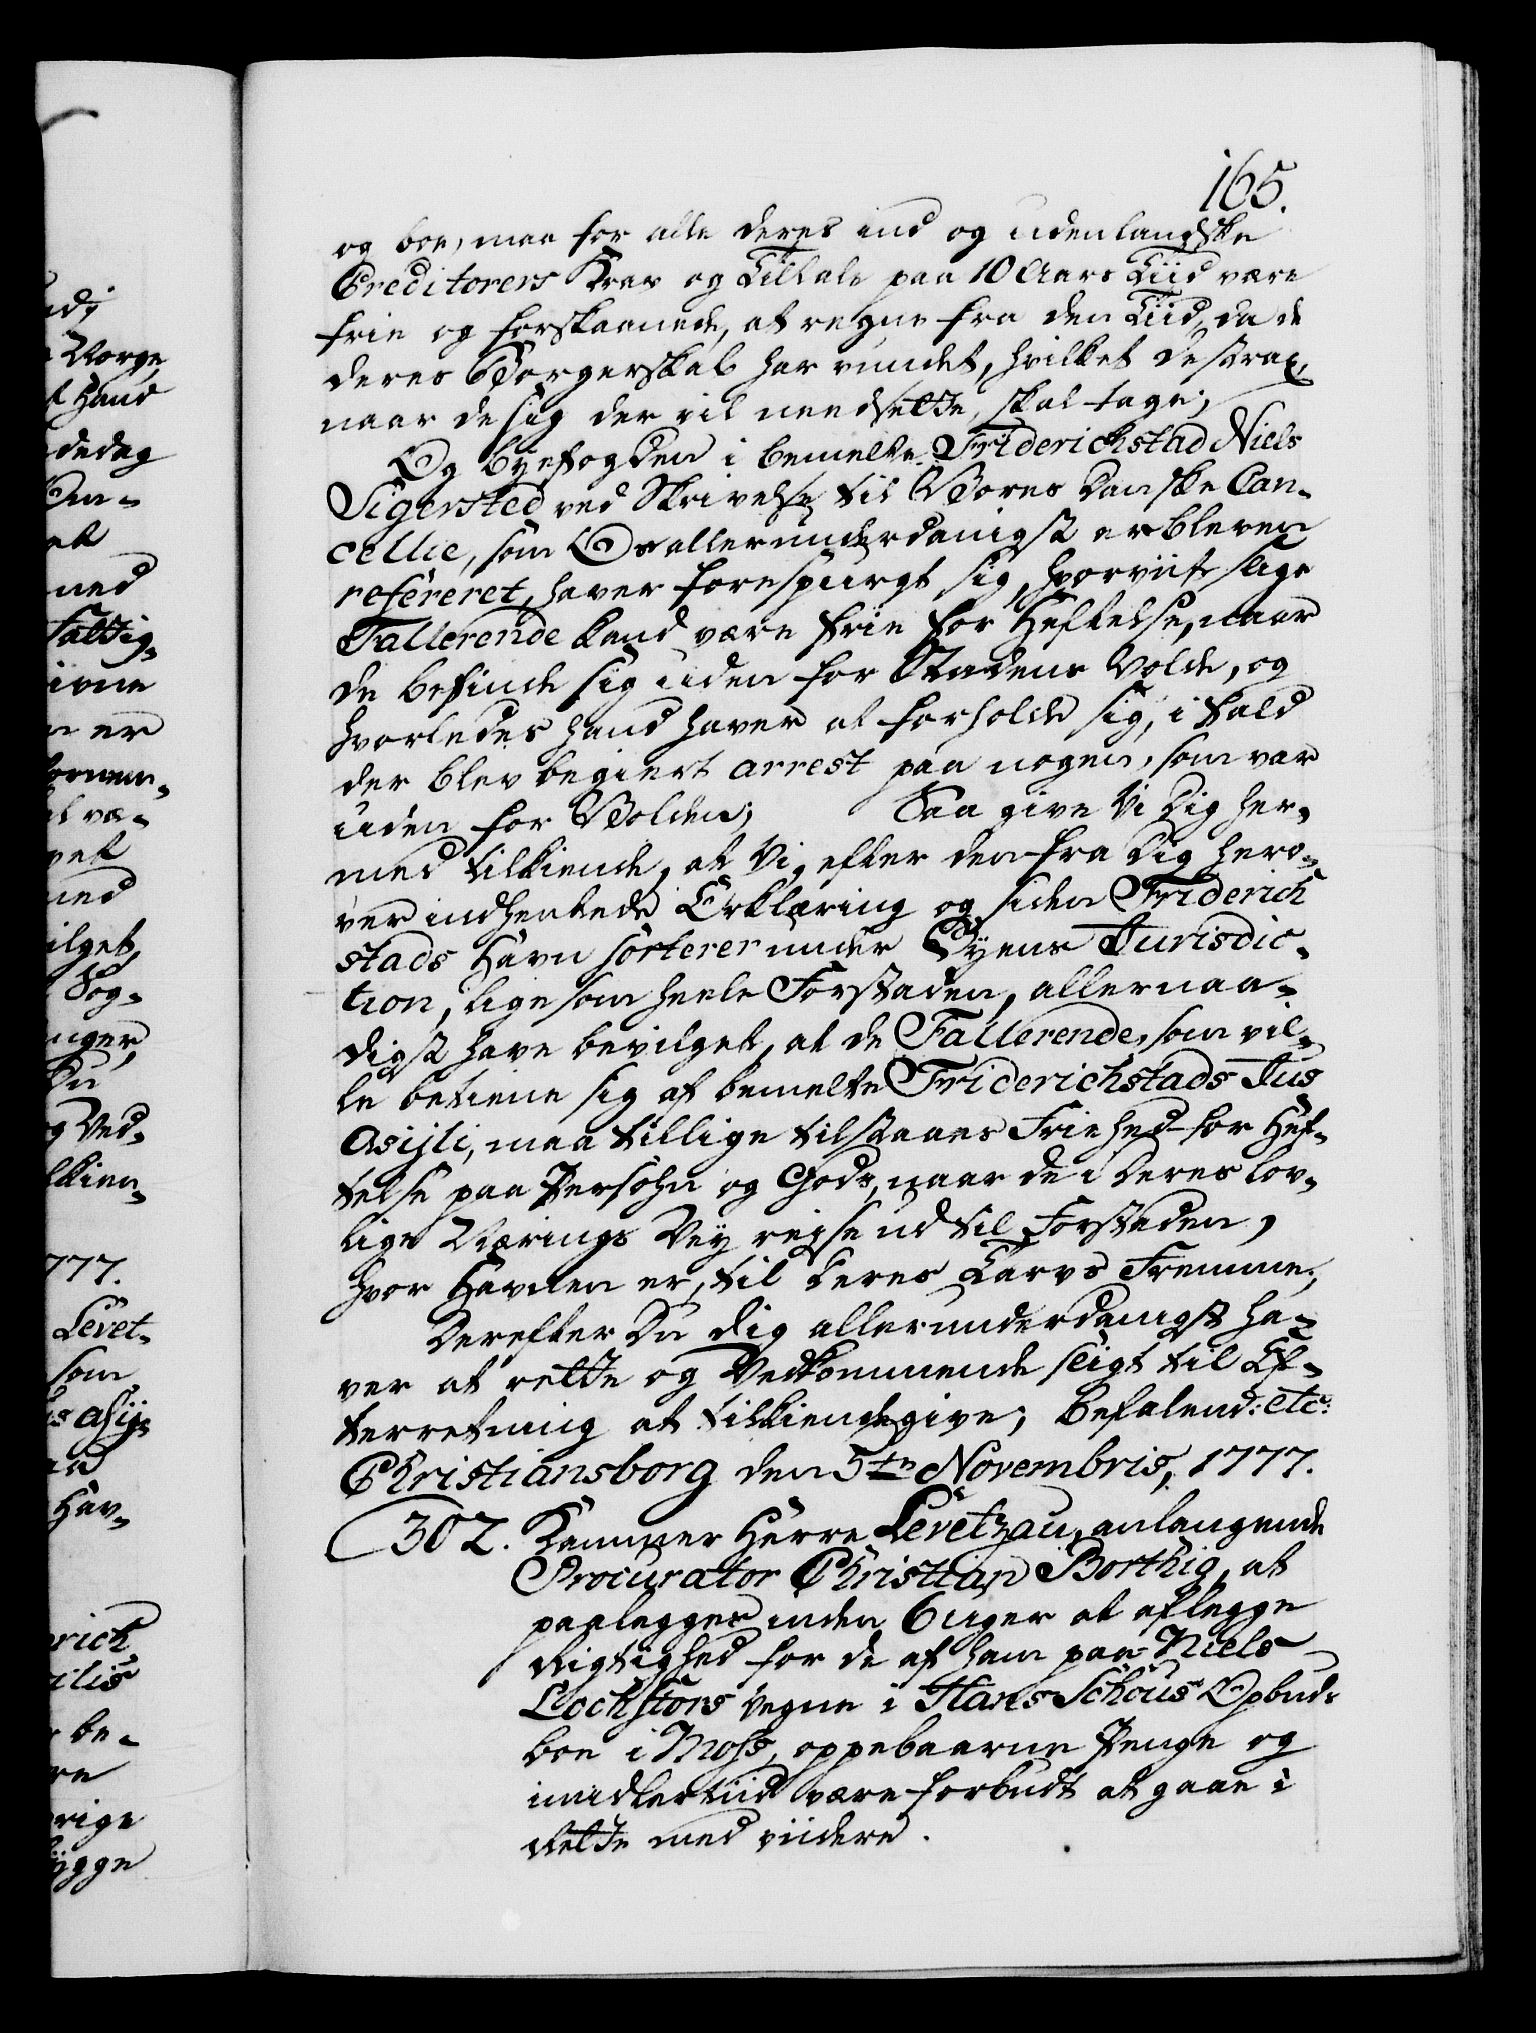 165.
og boe, maa for alle deres ind og udenlandske
Creditorers Krav og Tiltale paa 10 Aars Tiid være
frie og forskaanede, at regne fra den Tiid, da de
deres Borgerskab har vundet, hvilket de strax,
naar de sig der vil needsette, skal tage;
Og Byefogden i bemelte Friderichstad Niels
Sigersted ved Skrivelse til Vores Danske Can-
cellie, som Os allerunderdanigst er bleven
refereret, haver forespurgt sig, hvorviit slige
Fallerende kand være frie for Heftelse, naar
de befinde sig uden for Stadens Volde, og
hvorledes hand haver at forholde sig, i fald
der blev begiert arrest paa nogen, som var
uden for Volden; Saa give Vi Dig her-
med tilkiende, at Vi, efter den fra Dig hero-
ver indhentede Erklæring og siden Friderich
stads Havn sorterer under Byens Jurisdic-
tion, lige som heele Forstaden, allernaa-
digst have bevilget, at de Fallerende, som vil-
le betiene sig af bemelte Friderichstads Jus
Asijli, maa tillige tilstaaes Friehed for Hef-
telse paa Persohn og Gods, naar de i deres lov-
lige Nærings Vej rejse ud til Forstaden,
hvor Havnen er, til deres Tarvs Fremme;
Derefter Du Dig allerunderdanigst ha-
ver at rette og Vedkommende sligt til Ef-
terretning at tilkiendegive; Befalend: etc:
Christiansborg den 5te Novembris, 1777.
302. Kammer Herre Levetzau, anlangende
Procurator Christian Borthig, at
paalegges inden 6 uger at aflegge
Rigtighed for de af ham paa Niels
Lochstors Vegne i Hans Schous Opbuds
boe i Moss, oppebaarne Penge og
imidlertiid være forbudt at gaae i
Rette med viidere.